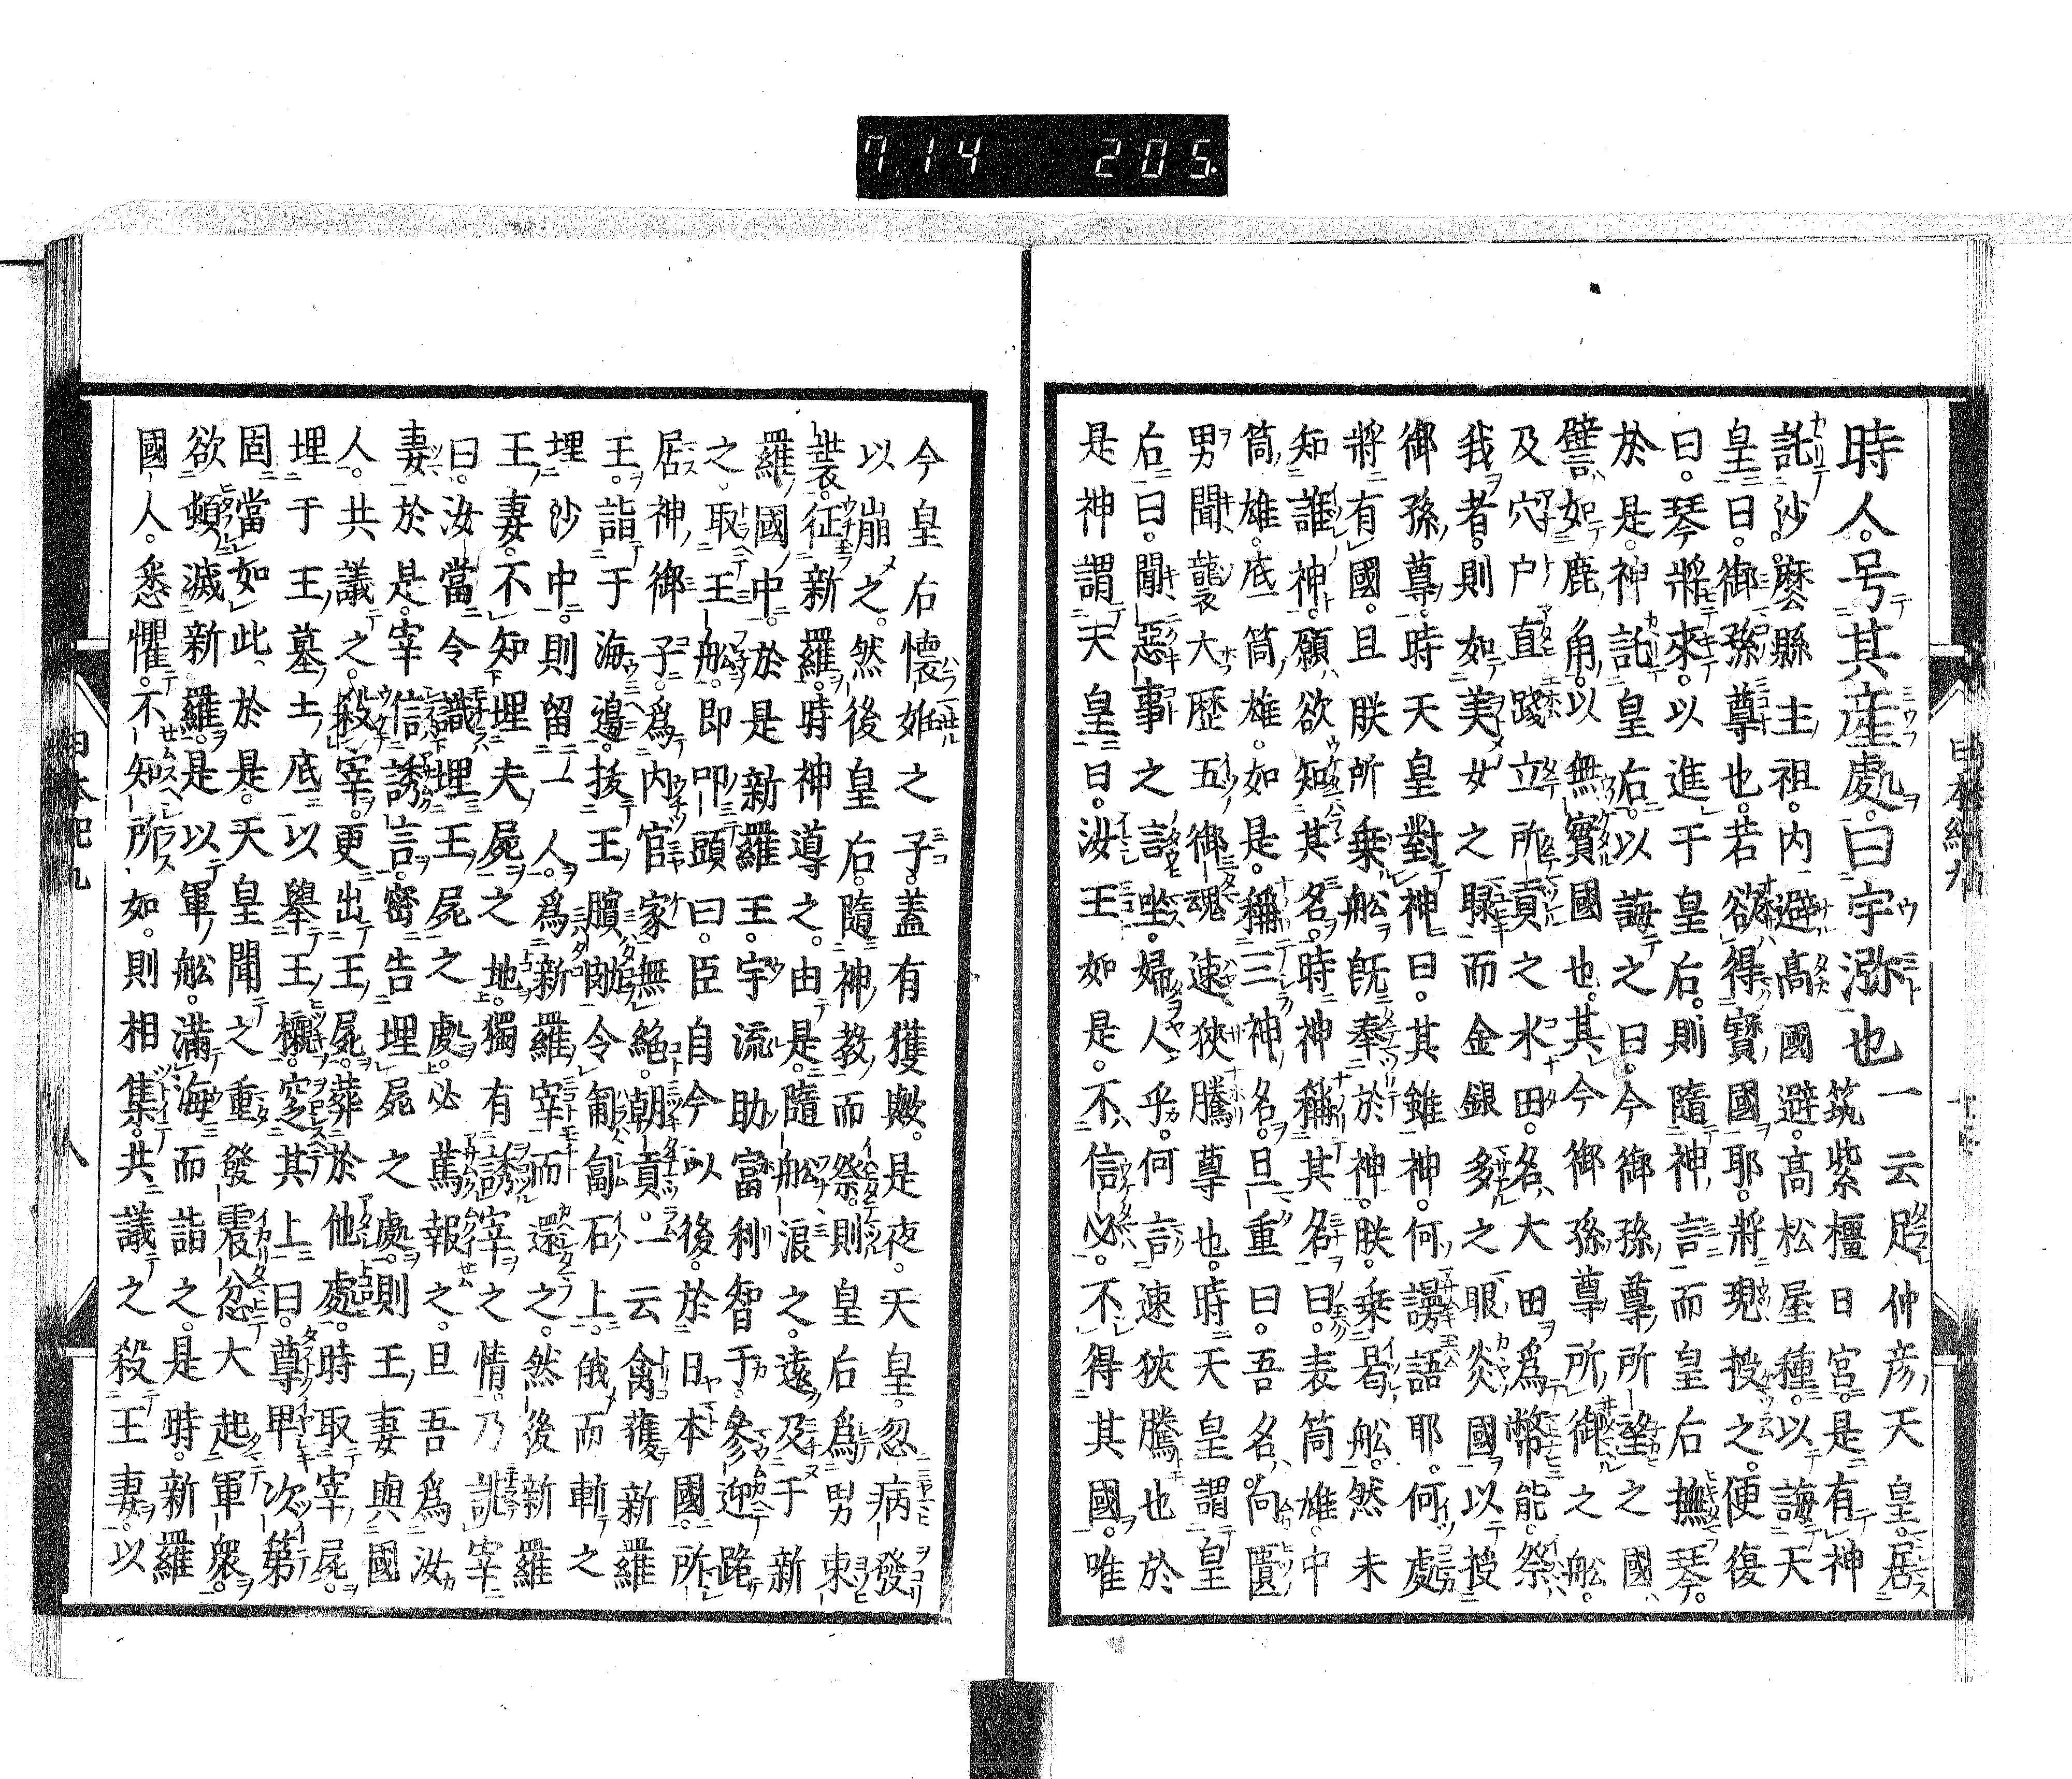 714 205
時人号其産處曰宇瀰也一云足仲彦天皇居
筑紫橿日宮是有神
託沙麼縣主祖内避高國避高松屋種以誨天
皇曰御孫尊也若欲得寶國耶將現授之便復
曰琴將來以進于皇后則隨神言而皇后撫琴
於是神託皇后以誨之曰今御孫尊所望之國
譬如鹿角以無實國也其今御孫尊所御之舩
及穴戸直踐立所貢之水田名大田爲幣能祭
我者則如美女之睩而金銀多之眼炎國以授
御孫尊時天皇對神曰其雖神何謾語耶何處
將有國且朕所乗舩既奉於神朕乗曷舩然未
知誰神願欲知其名時神稱其名曰表筒雄中
筒雄底筒雄如是稱三神名且重曰吾名向匱
男聞襲大歴五御魂速狹騰尊也時天皇謂皇
后曰聞惡事之言坐婦人乎何言速狹騰也於
是神謂天皇曰汝王如是不信必不得其國唯
日本紀九
今皇后懐姙之子蓋有獲歟是夜天皇忽病發
以崩之然後皇后隨神教而祭則皇后爲男束
裝征新羅時神導之由是隨舩浪之遠及于新
羅國中於是新羅王宇流助富利智于參迎跪
之取王舩即叩頭曰臣自今以後於日本國所
居神御子爲内官家無絶朝貢一云禽獲新羅
王詣于海邊拔王臏觔令匍匐石上俄而斬之
埋沙中則留一人爲新羅宰而還之然後新羅
王妻不知埋夫屍之地獨有誘宰之情乃誂宰
曰汝當令識埋王屍之處必篤報之且吾爲汝
妻於是宰信誘言密告埋屍之處則王妻與國
人共議之殺宰更出王屍葬於他處時取宰屍
埋于王墓土底以舉王櫬窆其上曰尊卑次第
固當如此於是天皇聞之重發震忿大起軍衆
欲頓滅新羅是以軍舩滿海而詣之是時新羅
國人悉懼不知所如則相集共議之殺王妻以